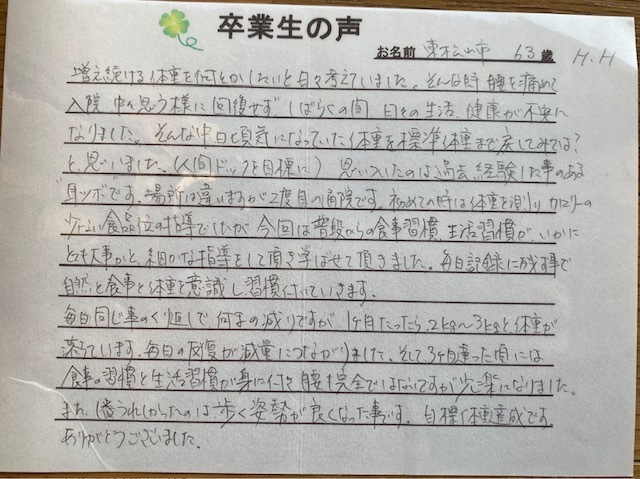 卒業生の声
お名前 東松山市 63歳 H.H
増え続ける体重を何とかしたいと日々考えていました。そんな時腰を痛めて
入院 中々思う様に回復せず しばらくの間 日々の生活、健康が不安に
なりました。そんな中日頃気になっていた体重を標準体重まで戻してみては?
と、思いました。(人間ドックを目標に) 思い入たのは過去、経験した事のある
"耳ツボ"です。場所は違いますが2度目の通院です。初めての時は体重を測り カロリーの
少ない食品位の指導でしたが 今回は普段からの食事習慣、生活習慣が、いかに
とても大事かと、細かな指導をして頂き学ばせて頂きました。毎日記録に残す事で
自然と食事と体重を意識し習慣付いていきます。
毎日同じ事のくり返しで 何gの減りですが 1ヶ月たったら、2kg〜3kgと体重が
落ちています、毎日の反復が減量につながりまして、そして3ヶ月通った間には
食事の習慣と生活習慣が身に付き 腰も完全ではないですが少し楽になりました。
また、1番うれしかったのは歩く姿勢が良くなった事です。目標体重達成です。
ありがとうございました。